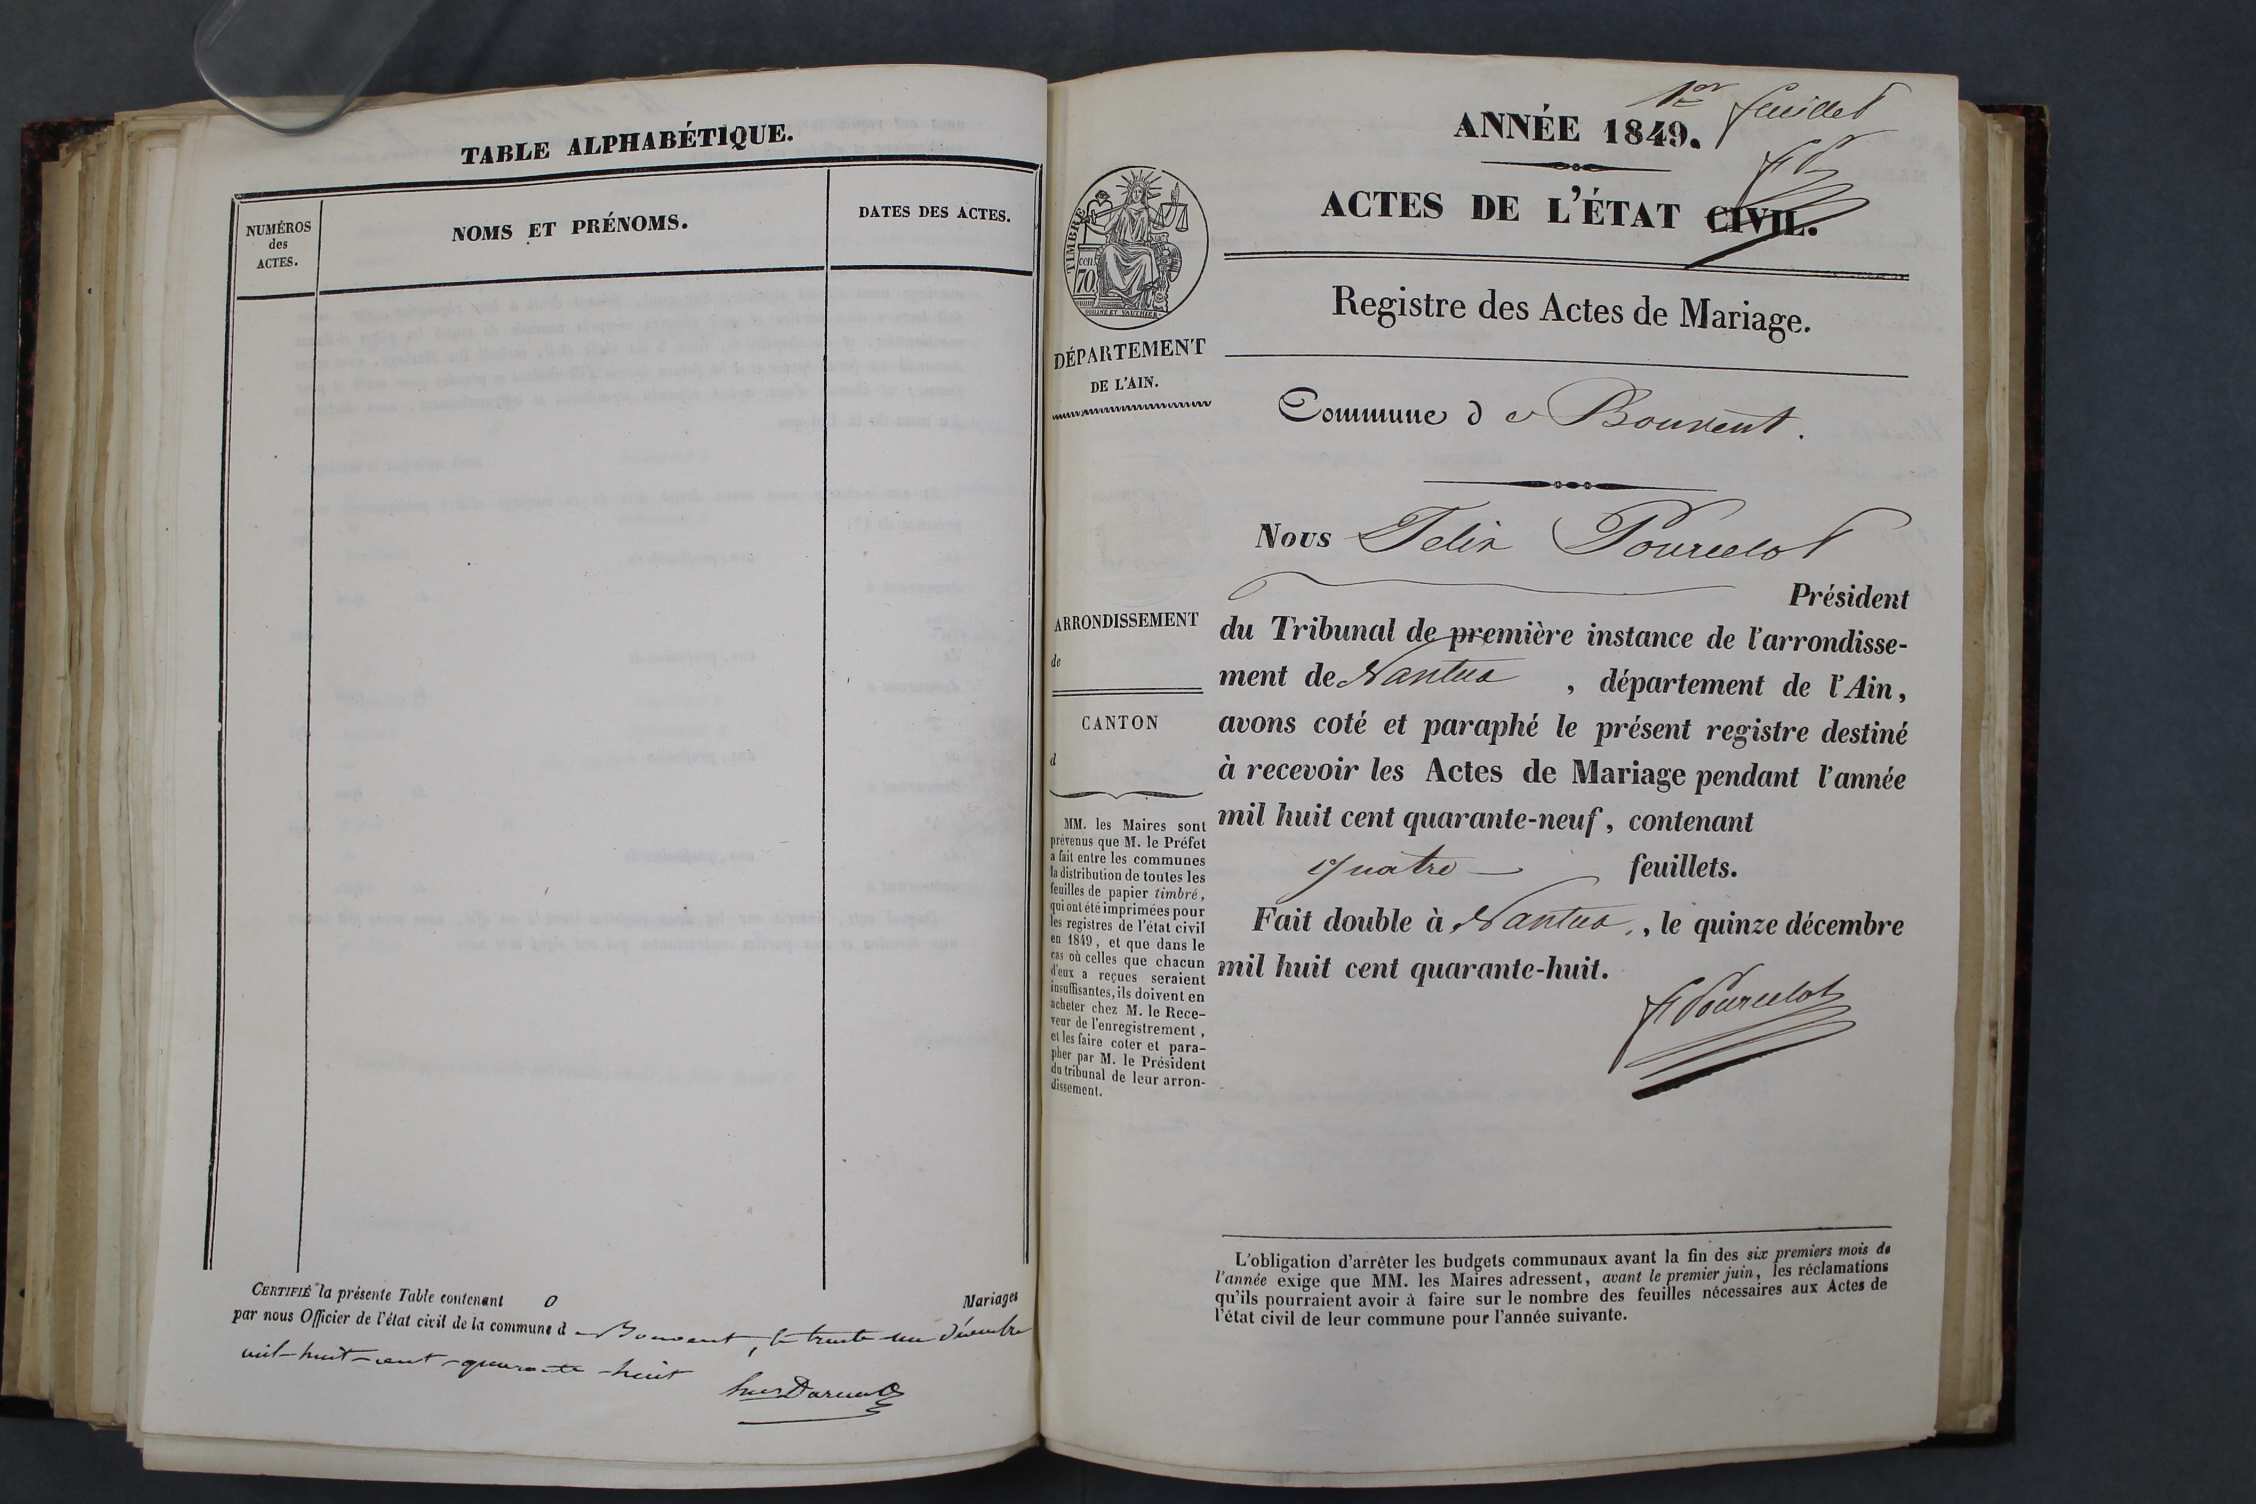 TABLE ALPHABÉTIQUE.
NUMÉROS
des
ACTES.
NOMS ET PRÉNOMS.
DATES DES ACTES.
CERTIFIÉ la présente Table contenant 0 Mariages
par nous Officier de l'état civil de la commune de Bouvent, le trente-un décembre
mil-huit-cent-quarante-huit
1er feuillet
ANNÉE 1849.
ACTES DE L'ÉTAT CIVIL.
Registre des Actes de Mariage.
TIMBRE
cen.
70
DÉPARTEMENT
DE L'AIN.
Commune de Bouvent.
Nous Felix Pourcelot
Président
ARRONDISSEMENT
de
CANTON
d
du Tribunal de première instance de l'arrondisse-
ment de Nantua, département de l'Ain,
avons coté et paraphé le présent registre destiné
à recevoir les Actes de Mariage pendant l'année
mil huit cent quarante-neuf, contenant
quatre feuillets.
Fait double à Nantua, le quinze décembre
mil huit cent quarante-huit.
F Pourcelot
MM. les Maires sont
prévenus que M. le Préfet
a fait entre les communes
la distribution de toutes les
feuilles de papier timbré,
qui ont été imprimées pour
les registres de l'état civil
en 1849, et que dans le
cas où celles que chacun
d'eux a reçues seraient
insuffisantes, ils doivent en
acheter chez M. le Rece-
veur de l'enregistrement,
et les faire coter et para-
pher par M. le Président
du tribunal de leur arron-
dissement.
L'obligation d'arrêter les budgets communaux avant la fin des six premiers mois de
l'année exige que MM. les Maires adressent, avant le premier juin, les réclamations
qu'ils pourraient avoir à faire sur le nombre des feuilles nécessaires aux Actes de
l'état civil de leur commune pour l'année suivante.